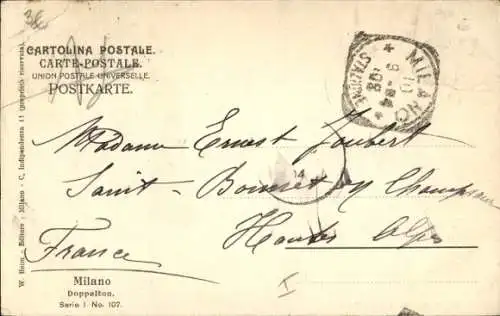 36
CARTOLINA POSTALE.
CARTE-POSTALE.
UNION POSTALE UNIVERSELLE.
POSTKARTE.
MILANO
STAZIONE
Madame Ernest Joubert
Saint-Bonnet en Champsaur
Hautes Alpes
France
14
Milano
Doppelton.
Serie I No. 107.
W. Heon - Editore - Milano - C. Indipendenza 11 (proprietà riservata).